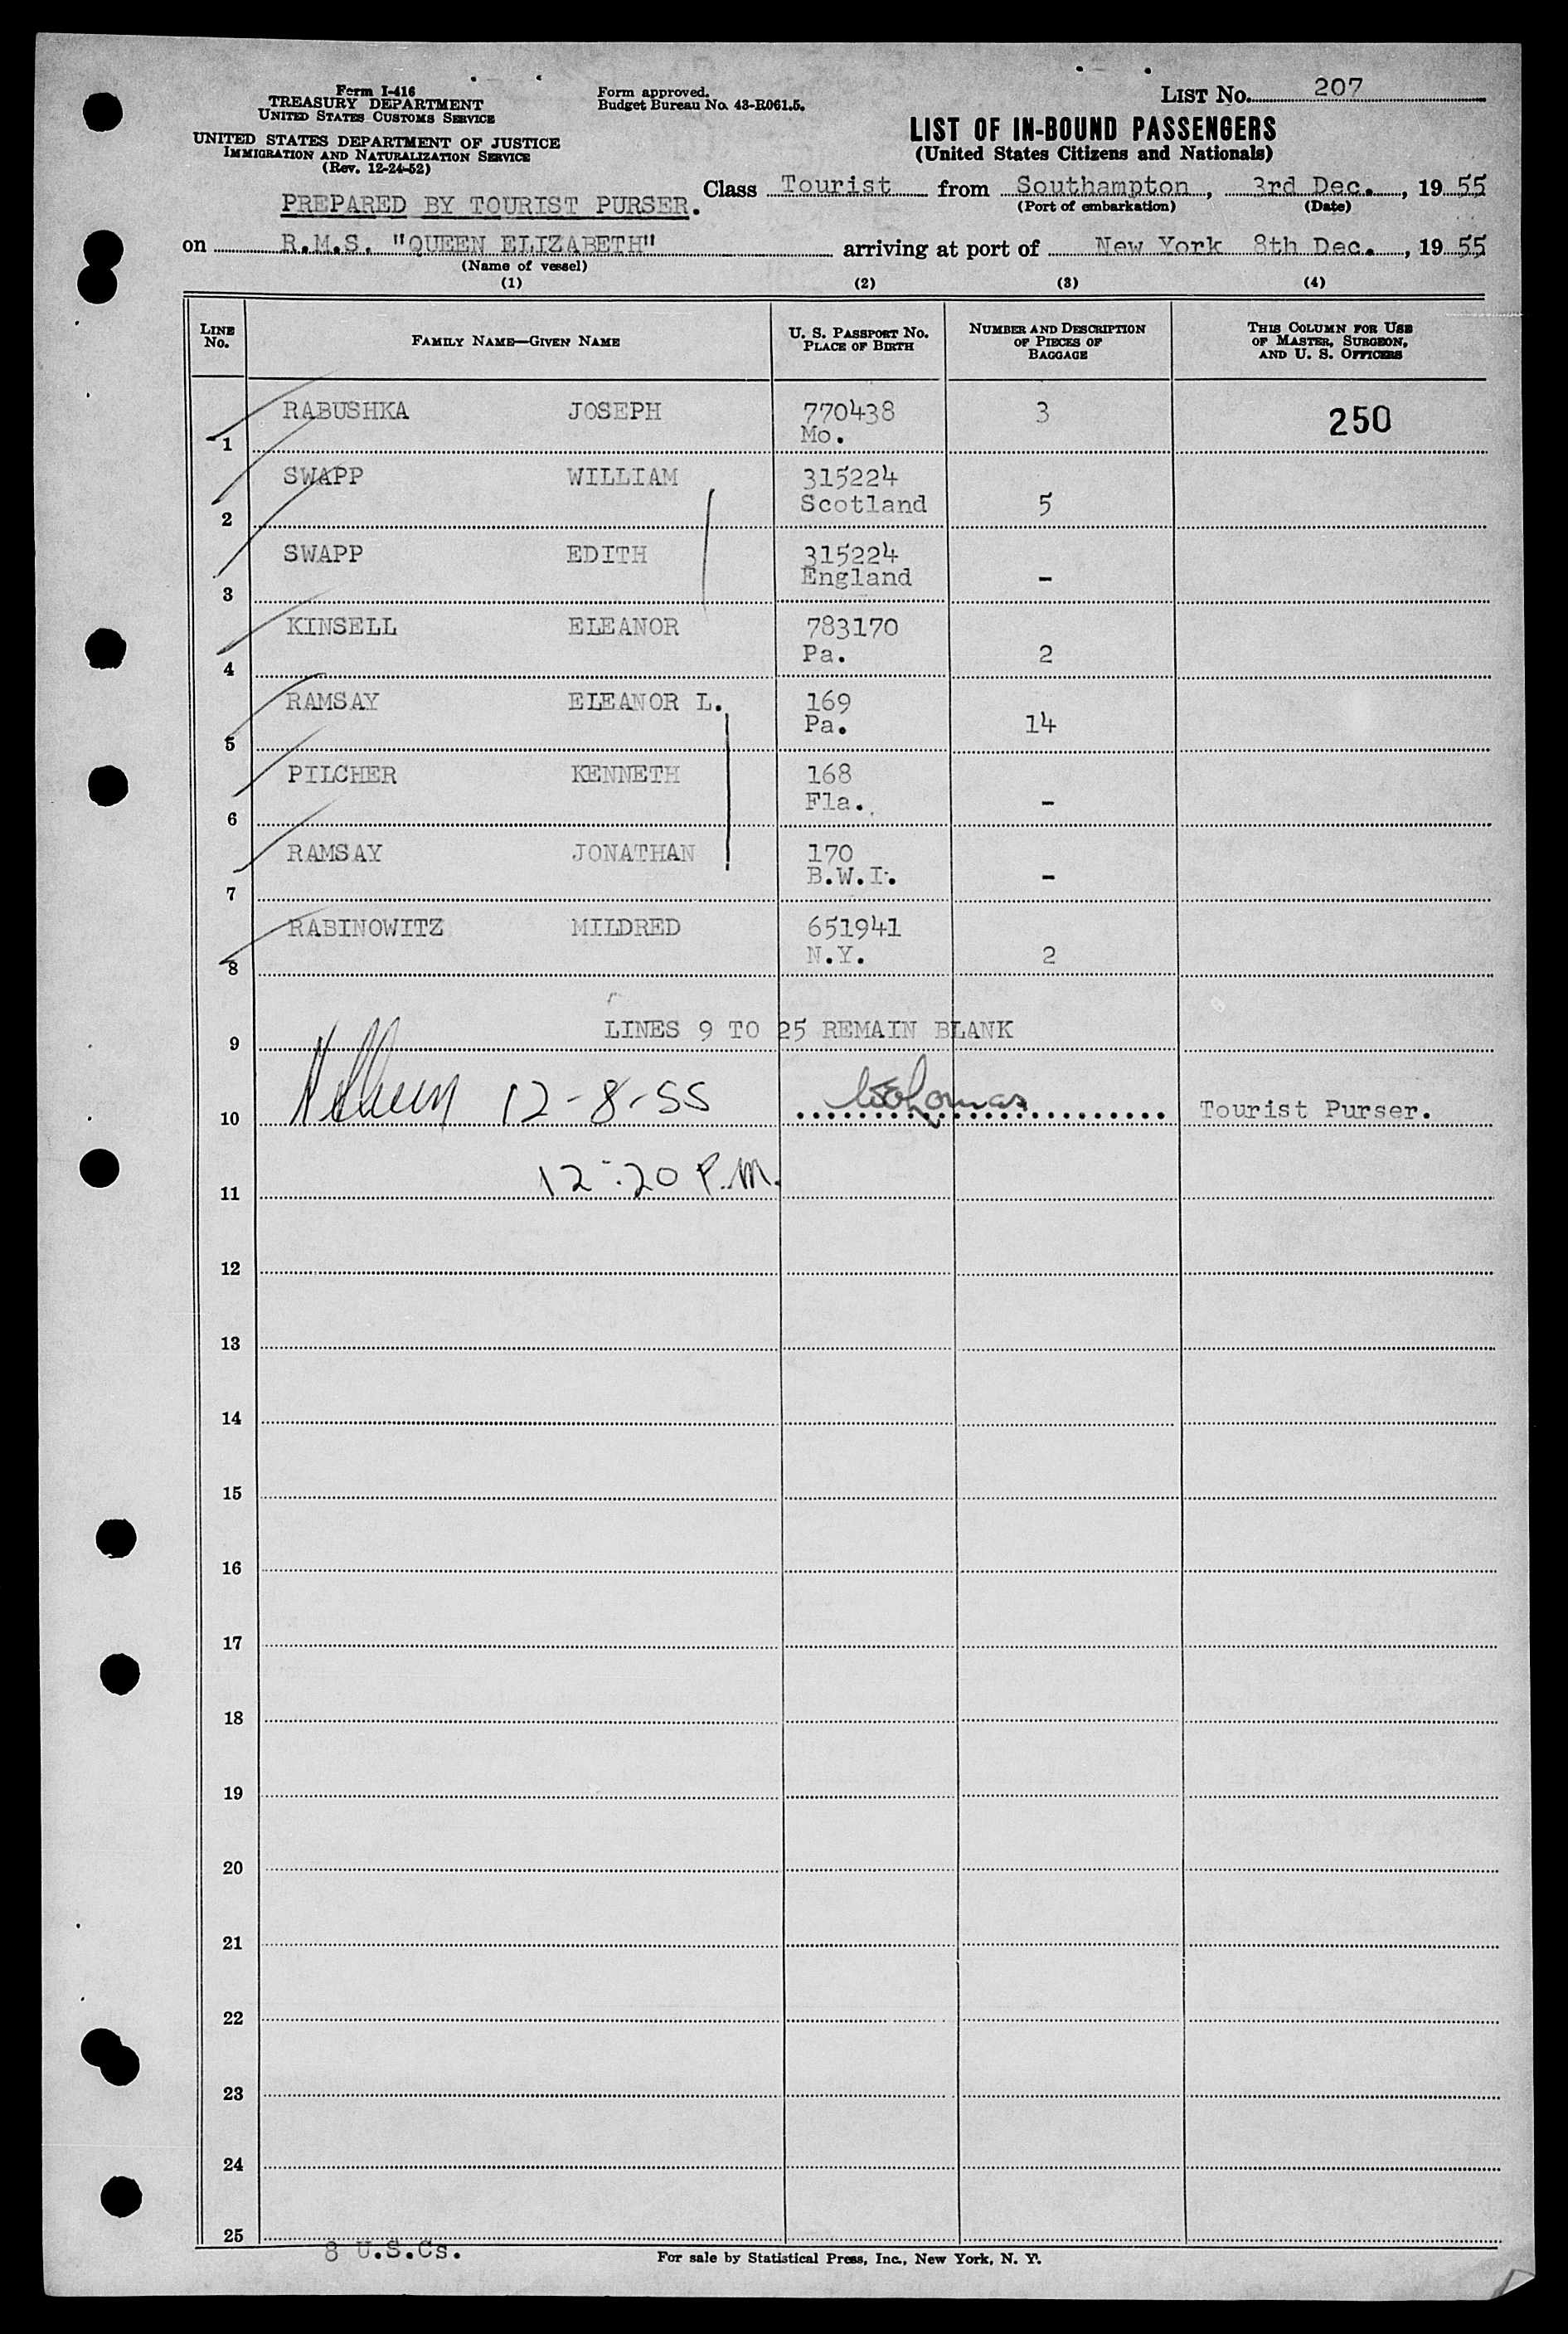 Form I-416
TREASURY DEPARTMENT
UNITED STATES CUSTOMS SERVICE
UNITED STATES DEPARTMENT OF JUSTICE
IMMIGRATION AND NATURALIZATION SERVICE
(Rev. 12-24-52)
Form approved.
Budget Bureau No. 43-R061.5.
LIST No. 207
LIST OF IN-BOUND PASSENGERS
(United States Citizens and Nationals)
PREPARED BY TOURIST PURSER.
Class Tourist from Southampton, 3rd Dec., 1955
(Port of embarkation) (Date)
on R.M.S. "QUEEN ELIZABETH" arriving at port of New York 8th Dec., 1955
(Name of vessel)
(1) (2) (3) (4)
LINE No. FAMILY NAME—GIVEN NAME U. S. PASSPORT No. PLACE OF BIRTH NUMBER AND DESCRIPTION OF PIECES OF BAGGAGE THIS COLUMN FOR USE OF MASTER, SURGEON, AND U. S. OFFICERS
1 RABUSHKA JOSEPH 770438 Mo. 3 250
2 SWAPP WILLIAM 315224 Scotland 5
3 SWAPP EDITH 315224 England -
4 KINSELL ELEANOR 783170 Pa. 2
5 RAMSAY ELEANOR L. 169 Pa. 14
6 PILCHER KENNETH 168 Fla. -
7 RAMSAY JONATHAN 170 B.W.I. -
8 RABINOWITZ MILDRED 651941 N.Y. 2
9 LINES 9 TO 25 REMAIN BLANK
10 12-8-55 Tourist Purser.
11 12:20 P.M.
12
13
14
15
16
17
18
19
20
21
22
23
24
25
8 U.S.Cs.
For sale by Statistical Press, Inc., New York, N. Y.